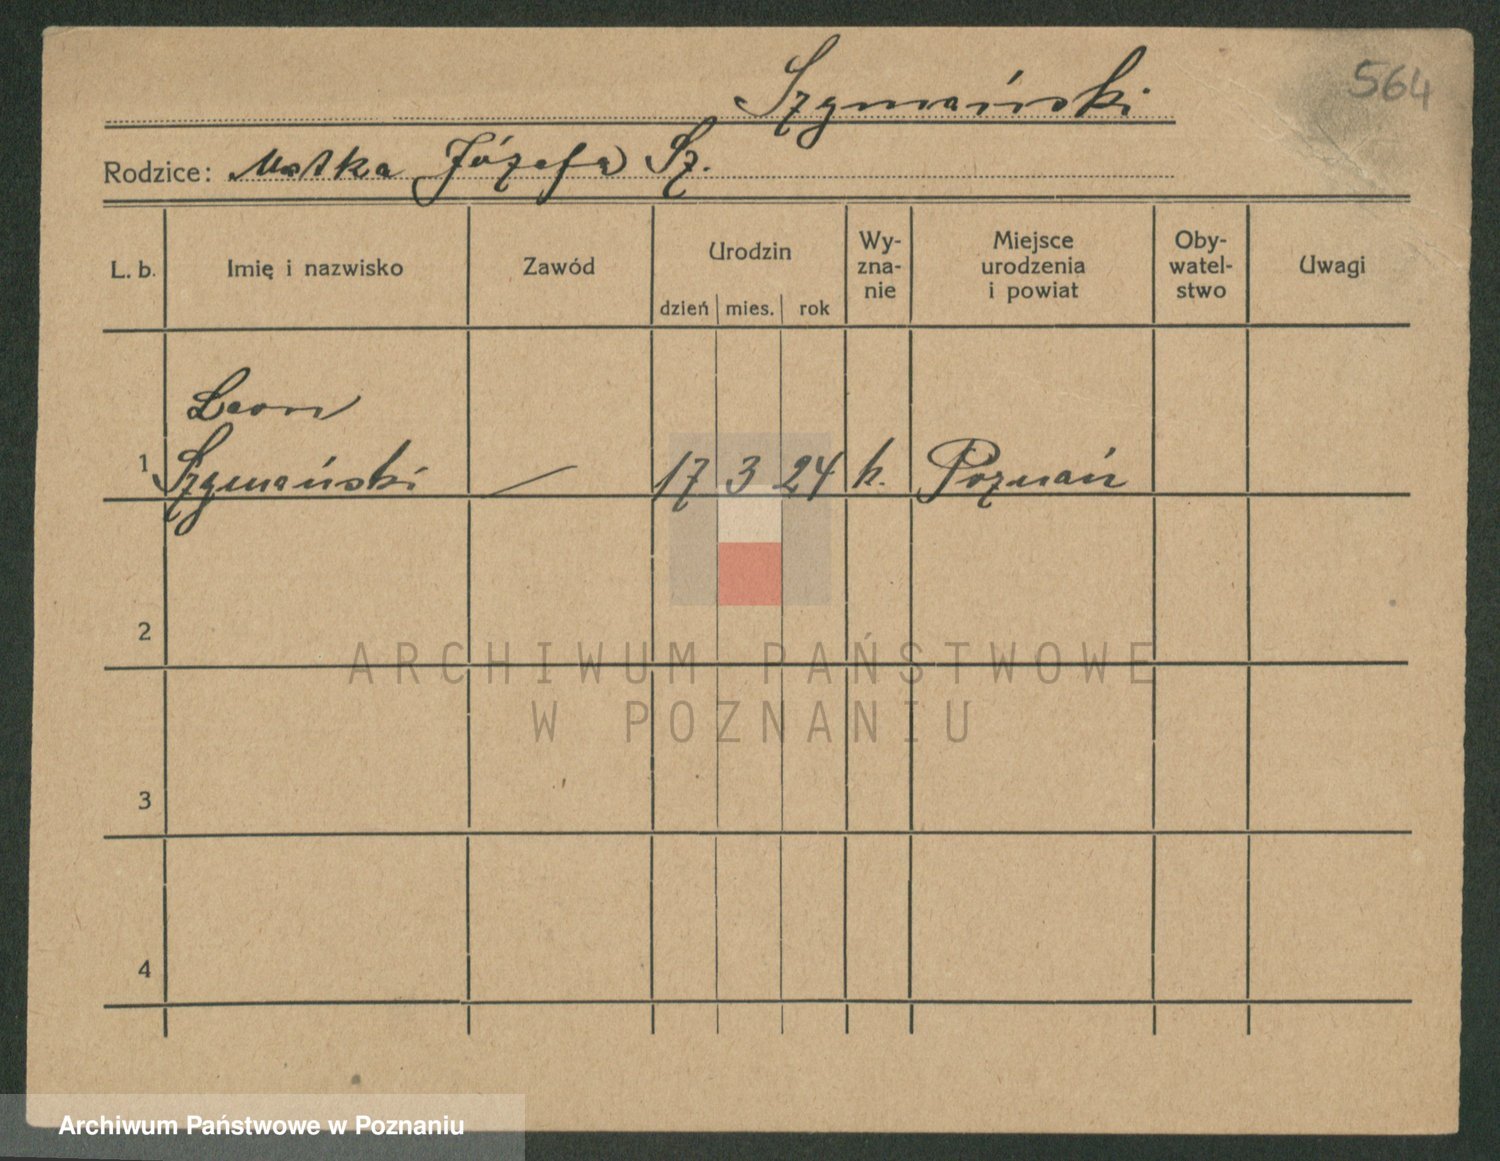 564
Szymański
Rodzice: Matka Józefa Sz.
L. b. Imię i nazwisko Zawód Urodzin Wy-zna-nie Miejsce urodzenia i powiat Oby-watel-stwo Uwagi
dzień mies. rok
Leon
1 Szymański — 17 3 24 k. Poznań
2
ARCHIWUM PAŃSTWOWE
W POZNANIU
3
4
Archiwum Państwowe w Poznaniu